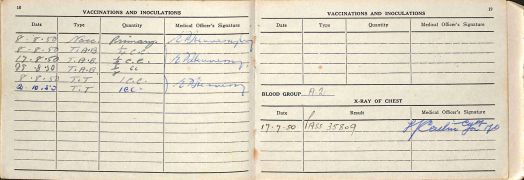 18
VACCINATIONS AND INOCULATIONS
Date Type Quantity Medical Officer's Signature
8-8-50 Vacc Primary
8-8-50 T.A.B ½ c.c.
17-8-50 T.A.B c.c.
8-50 T.A.B cc
8-8-50 T.T 1 c.c.
10.50 T.T 1cc.
19
VACCINATIONS AND INOCULATIONS
Date Type Quantity Medical Officer's Signature
BLOOD GROUP A2
X-RAY OF CHEST
Date Result Medical Officer's Signature
17-7-50 1A55 35809